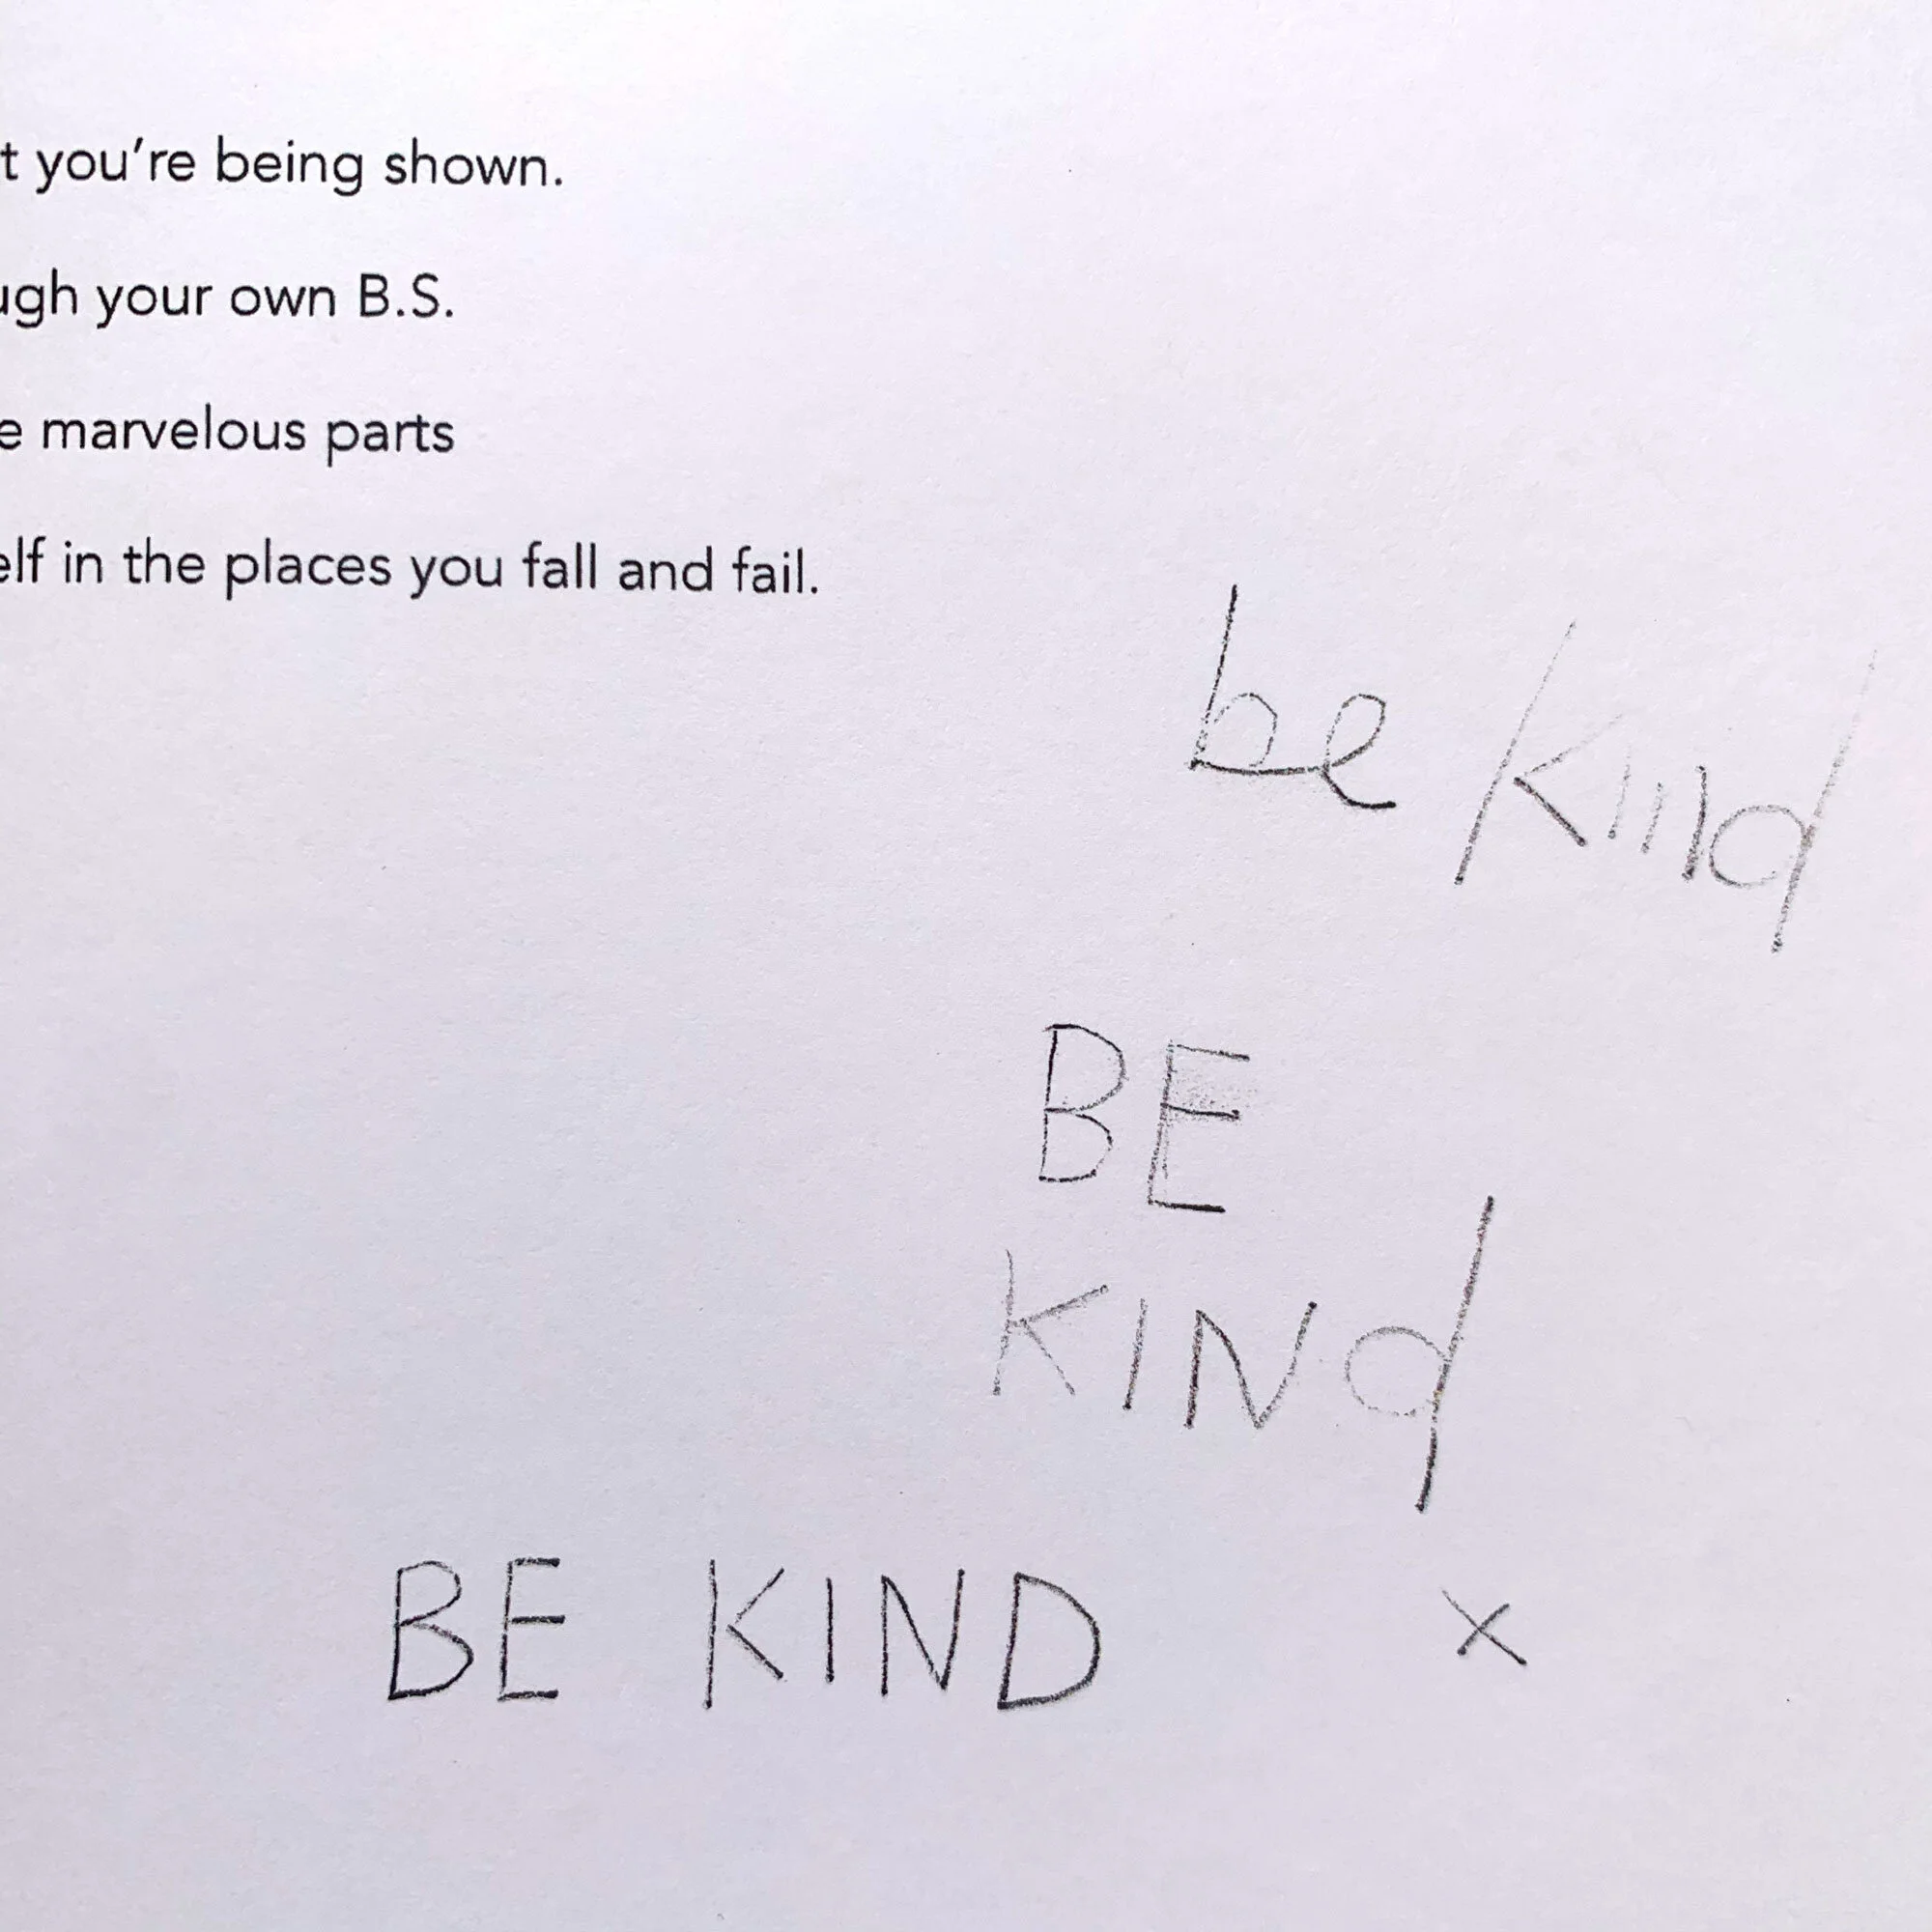 t you're being shown.
ugh your own B.S.
e marvelous parts
elf in the places you fall and fail.
be kind
BE
KINd
BE KIND x